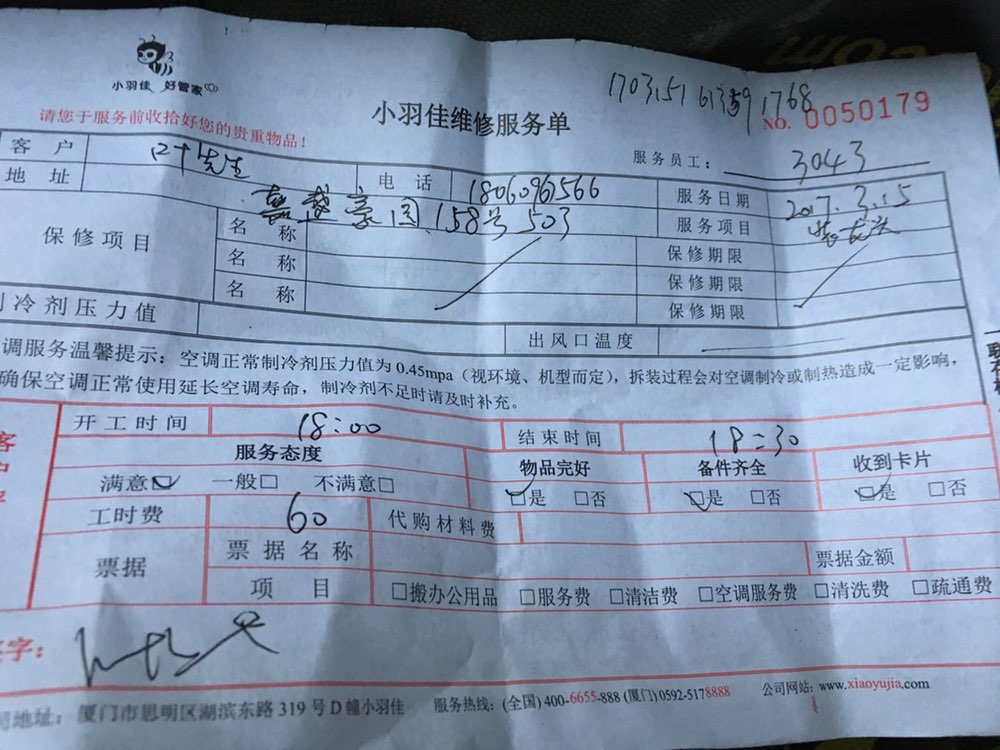 小羽佳 好管家
请您于服务前收拾好您的贵重物品！
小羽佳维修服务单
1768
NO. 0050179
服务员工： 3043
客户 叶先生 电话 18060963566 服务日期 2017.3.15
地址 豪园 158号 503 服务项目
保修项目 名称 保修期限
名称 保修期限
名称 保修期限
冷剂压力值 出风口温度
调服务温馨提示：空调正常制冷剂压力值为 0.45mpa（视环境、机型而定），拆装过程会对空调制冷或制热造成一定影响，
确保空调正常使用延长空调寿命，制冷剂不足时请及时补充。
开工时间 18:00 结束时间 18:30
服务态度 物品完好 备件齐全 收到卡片
满意 一般 不满意 是 否 是 否 是 否
工时费 60 代购材料费
票据 票据名称 票据金额
项目 搬办公用品 服务费 清洁费 空调服务费 清洗费 疏通费
字：
地址：厦门市思明区湖滨东路 319 号 D 幢小羽佳 服务热线：(全国) 400-6655-888 (厦门) 0592-5178888 公司网站：www.xiaoyujia.com